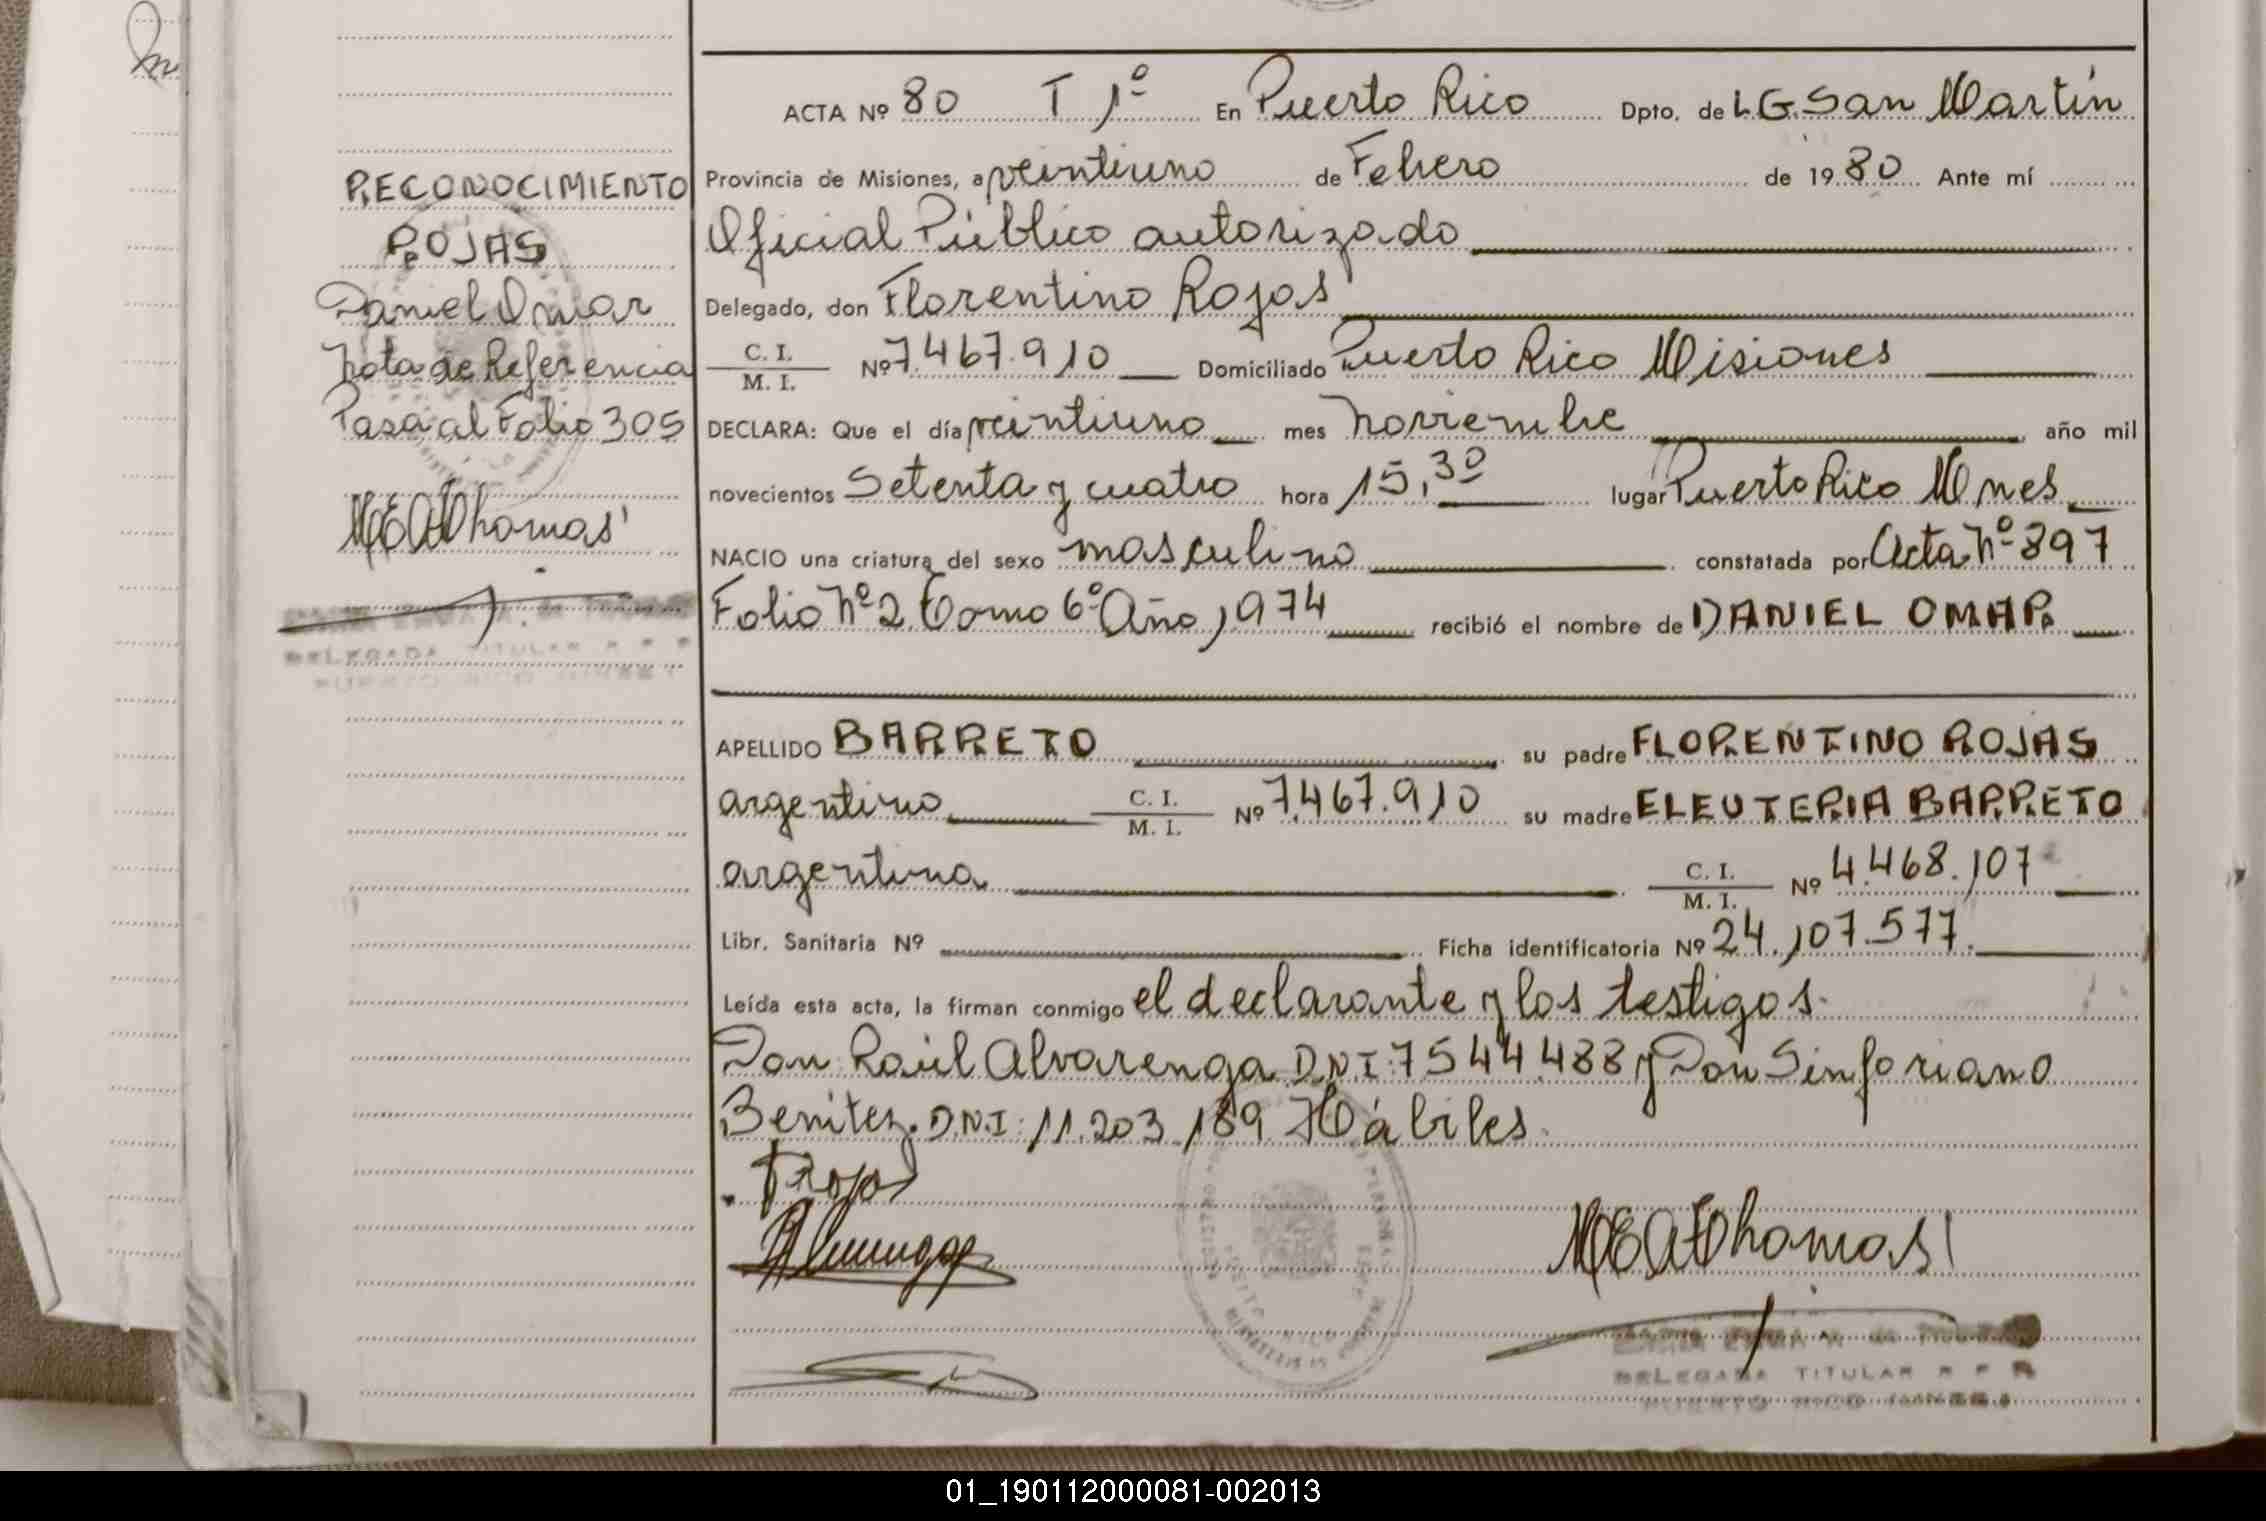 ACTA Nº 80 T 1º En Puerto Rico Dpto. de L.G. San Martín
Provincia de Misiones, a veintiuno de Febrero de 1980 Ante mí
Oficial Público autorizado
Delegado, don Florentino Rojas
C. I.
M. I. Nº 7.467.910 Domiciliado Puerto Rico Misiones
DECLARA: Que el día veintiuno mes Noviembre año mil
novecientos Setenta y cuatro hora 15,30 lugar Puerto Rico Mnes
NACIO una criatura del sexo masculino constatada por Acta Nº 897
Folio Nº 2 Tomo 6º Año 1974 recibió el nombre de DANIEL OMAR
APELLIDO BARRETO su padre FLORENTINO ROJAS
argentino C. I.
M. I. Nº 7.467.910 su madre ELEUTERIA BARRETO
argentina C. I.
M. I. Nº 4.468.107
Libr. Sanitaria Nº Ficha identificatoria Nº 24.107.577.
Leída esta acta, la firman conmigo el declarante y los testigos.
Don Raúl Alvarenga D.N.I: 7544.488 y Don Sinforiano
Benitez. D.N.I: 11.203.189 Hábiles.
RECONOCIMIENTO
ROJAS
Daniel Omar
Nota de Referencia
Pasa al Folio 305
MEAThomas
DELEGADA TITULAR R P P
PUERTO RICO
FRojas
MEAThomas
DELEGADA TITULAR R P P
PUERTO RICO
PUERTO RICO
01_190112000081-002013